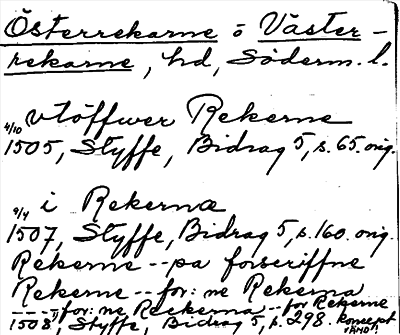 Österrekarne o Väster-
rekarne, hd, Söderm. l.
4/10 vtöffwer Rekerne
1505, Styffe, Bidrag 5, s. 65. orig.
9/4 i Rekernæ
1507, Styffe, Bidrag 5, s. 160. orig.
Rekerne -- pa forscriffne
Rekerne -- for: ne Rekerna
---- for: ne Reekerna -- for Rekerne
1508, Styffe, Bidrag 5, s. 298. koncept